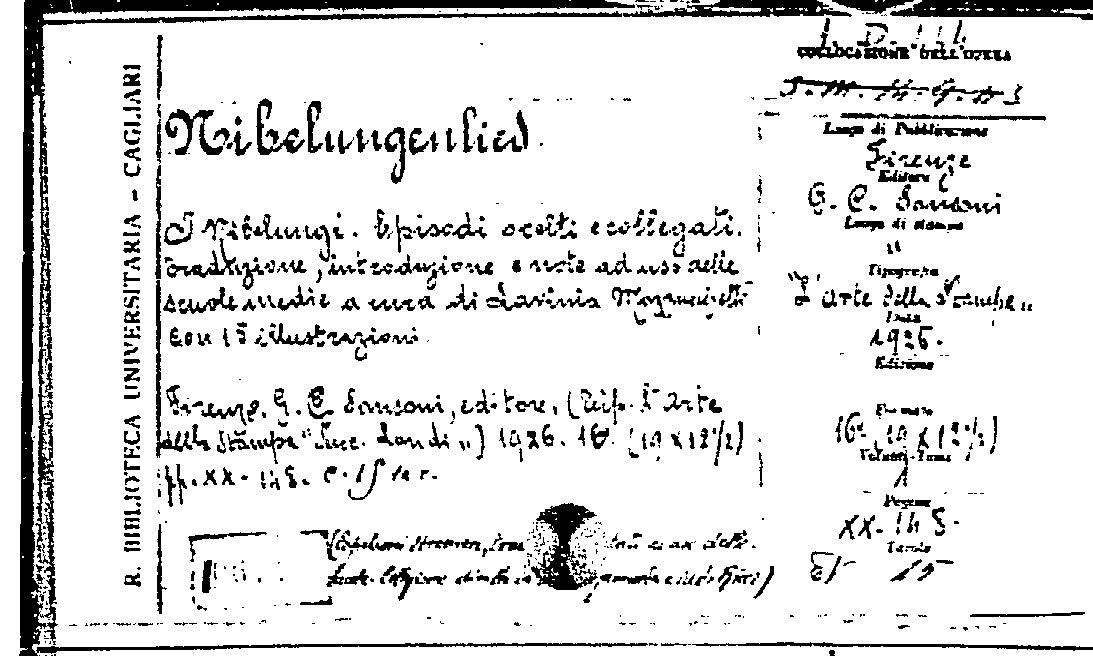 R. BIBLIOTECA UNIVERSITARIA - CAGLIARI
Nibelungenlied
I Nibelungi. Episodi scelti e collegati.
Traduzione, introduzione e note ad uso delle
scuole medie a cura di Lavinia Mazzucchetti
con 15 illustrazioni.
Firenze, G. C. Sansoni, editore, (Tip. L'arte
della Stampa "Succ. Landi„) 1926. 16º (19 x 12 1/2)
pp. XX - 148. c. 15 tav.
COLLOCAZIONE DELL'OPERA
Luogo di Pubblicazione
Firenze
Editore
G. C. Sansoni
Luogo di stampa
"
Tipografia
"L'arte della Stampa„
Data
1926.
Edizione
Formato
16º (19 x 12 1/2)
Volumi-Tomo
1
Pagine
XX - 148.
Tavole
15